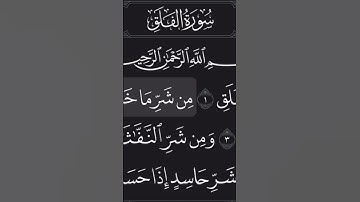 سُورَةُ الفَلَقِ
ـمِ اللَّهِ الرَّحْمَٰنِ الرَّحِيـ
ـلَقِ ١ مِن شَرِّ مَا خَـ
٣ وَمِن شَرِّ النَّفَّـٰثَـ
شَرِّ حَاسِدٍ إِذَا حَسَـ